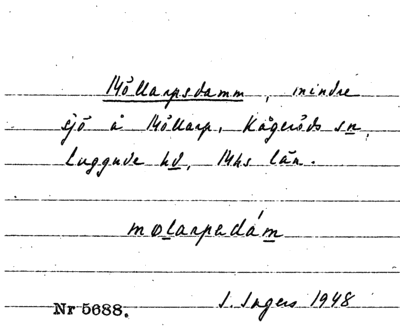 Möllarpsdamm, mindre
sjö å Möllarp, Kågeröds sn,
Luggude hd, Mhs län.
mølarpsdám
S. Ingers 1948
Nr 5688.